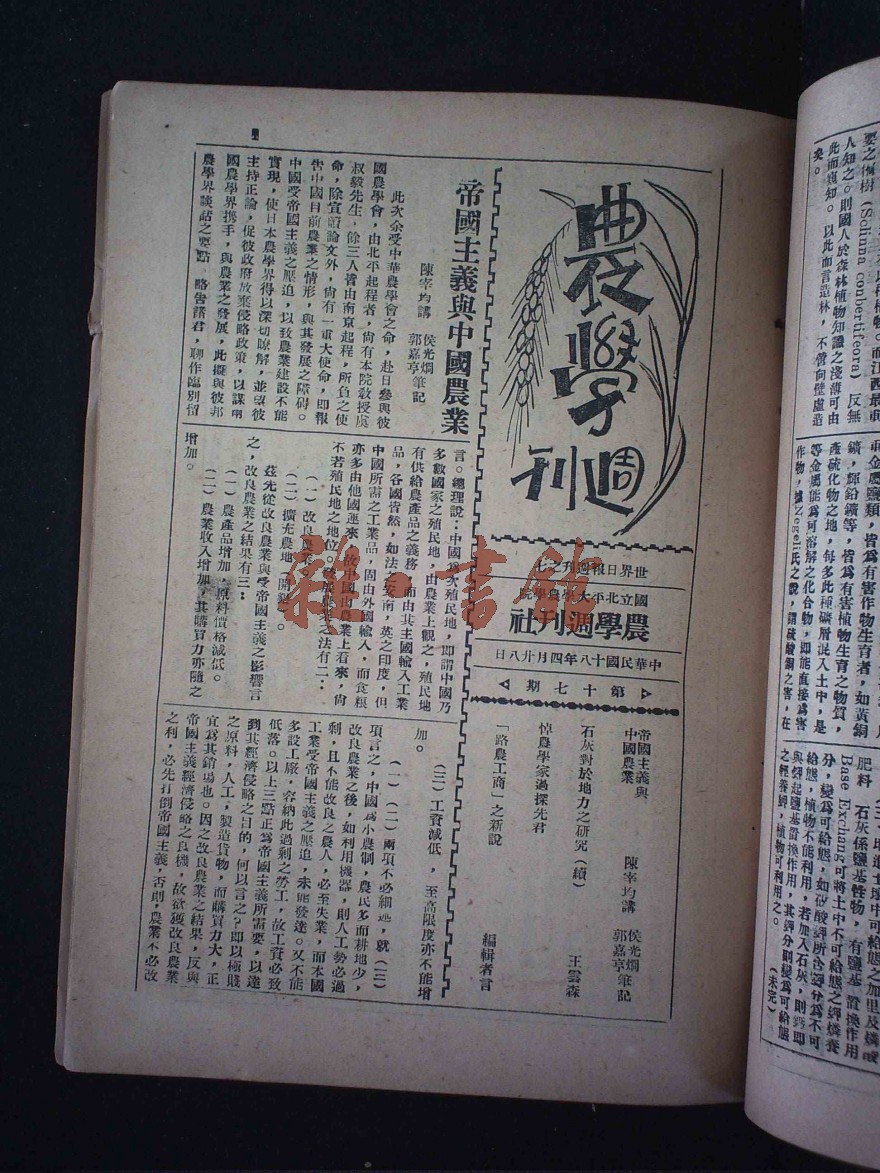 農學
週刊
世界日報週刊之七
國立北平大學農學院
農學週刊社
中華民國十八年四月廿八日
第十七期
帝國主義與
中國農業
陳宰均講
侯光烱
郭嘉亨筆記
石灰對於地力之研究(續)
王雲森
悼農學家過探先君
「路農工商」之新說
編輯者言
帝國主義與中國農業
陳宰均講
侯光烱
郭嘉亨筆記
此次余受中華農學會之命,赴日參與彼
國農學會,由北平起程者,尙有本院敎授
叔毅先生,餘三人皆由南京起程,所負之使
命,除宣讀論文外,尙有一重大使命,即報
告中國目前農業之情形,與其發展之障碍。
中國受帝國主義之壓迫,以致農業建設不能
實現,使日本農學界得以深切瞭解,並望彼
主持正論,促彼政府放棄侵略政策,以謀兩
國農學界携手,與農業之發展,此擬與彼邦
農學界談話之要點,略告諸君,聊作臨別留
言。總理說:中國爲次殖民地,即謂中國乃
多數國家之殖民地,由農業上觀之,殖民地
有供給農產品之義務,而由其主國輸入工業
品,各國皆然,如法之安南,英之印度,但
中國所需之工業品,固由外國輸入,而食糧
亦多由他國運來,故中國由農業上看來,尙
不若殖民地之地位。發展農業之法有二:
(一)改良農業
(二)擴充農地(開墾)。
茲先從改良農業與受帝國主義之影響言
之,改良農業之結果有三:
(一)農產品增加,原料價格減低。
(二)農業收入增加,其購買力亦隨之
增加。
(三)工資減低,至高限度亦不能增
加。
(一)(二)兩項不必細述,就(三)
項言之,中國爲小農制,農民多而耕地少,
改良農業之後,如利用機器,則人工勢必過
剩,且不能改良之農人,必至失業,而本國
工業受帝國主義之壓迫,未能發達。又不能
多設工廠,容納此過剩之勞工,故工資必致
低落。以上三點正爲帝國主義所需要,以達
到其經濟侵略之目的,何以言之?即以極賤
之原料,人工,製造貨物,而購買力大,正
宜爲其銷塲也。因之改良農業之結果,反與
帝國主義經濟侵略之良機,故欲獲改良農業
之利,必先打倒帝國主義,否則,農業不必改
人知之。則國人於森林植物知識之淺薄可由
此而窺知。以此而言造林,不啻向壁虛造
矣。
鑛,輝鉛鑛等,皆爲有害植物生育之物質,
產硫化物之地,每多此種礦層混入土中,是
等金屬能爲可溶解之化合物,即能直接爲害
肥料 石灰係鹽基性物,有鹽基置換作用
Base Exchang可將土中不可給態之鉀燐養
分,變爲可給態,如矽酸鉀所含鉀分爲不可
給態,植物不能利用,若加入石灰,則鈣即
與鉀起鹽基置換作用,其鉀分則變爲可給態
植物可利用之。
(未完)
雜·書館